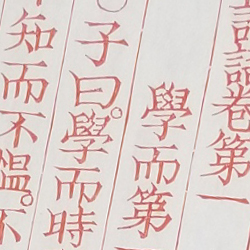 語卷第一
學而第
○子曰。學而時
知而不慍。不